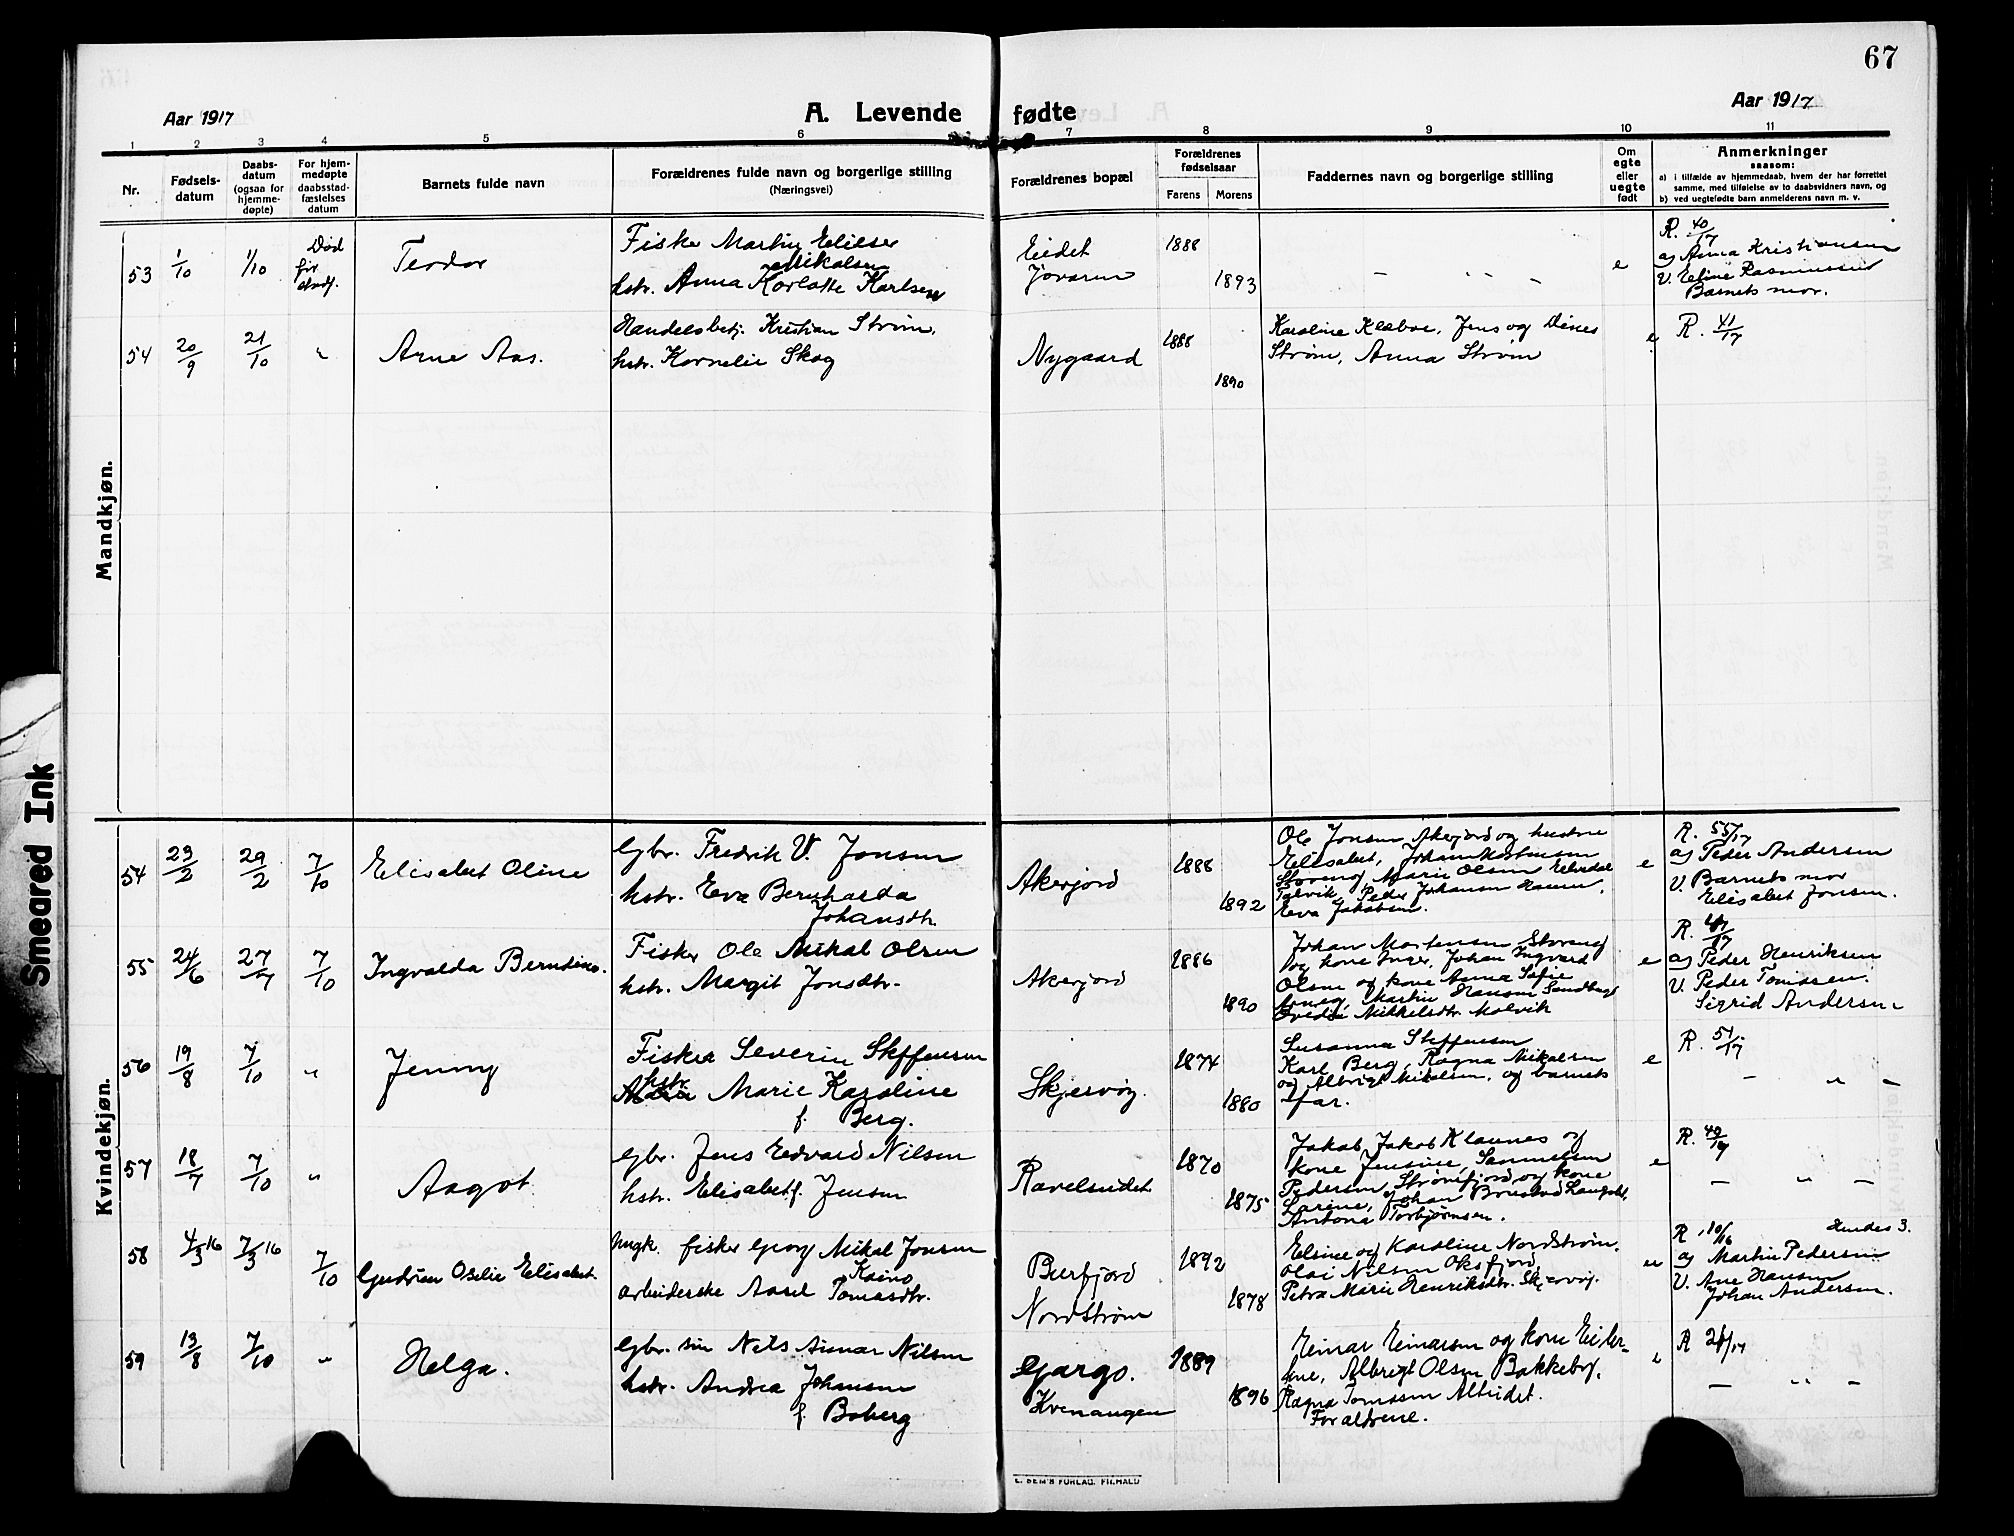 67
Aar 1917
A. Levende fødte
Aar 1917
1 2 3 4 5 6 7 8 9 10 11
Nr.
Fødsels-
datum
Daabs-
datum
(ogsaa for
hjemme-
døpte)
For hjem-
medøpte
daabsstad-
fæstelses
datum
Barnets fulde navn
Forældrenes fulde navn og borgerlige stilling
(Næringsvei)
Forældrenes bopæl
Forældrenes
fødselsaar
Farens Morens
Faddernes navn og borgerlige stilling
Om
egte
eller
uegte
født
Anmerkninger
saasom:
a) i tilfælde av hjemmedaab, hvem der har forrettet
samme, med tilføielse av to daabsvidners navn, og
b) ved uegtefødte barn anmelderens navn m. v.
Mandkjøn.
53 1/10 1/10 Død før stadf. Teodor
Fisker Martin Elieser
Mikalsen
hstr. Anna Karlotte Karlsen
Eidet
Jøvaren
1888
1893
— " —
e
R. 40/17
a) Anna Kristiansen
V. Eline Rasmussen
Barnets mor.
54 20/9 21/10 " Arne Aas.
Handelsbetj. Kristian Strøm,
hstr. Kornelie Skog
Nygaard
1888
1890
Karoline Klæboe, Jens og Dines
Strøm, Anna Strøm
e
R. 41/17
Kvindekjøn.
54 23/2 29/2 7/10 Elisabet Oline
Gbr. Fredrik V. Jonsen
hstr. Eva Bernharda
Johansdtr.
Akerjord
1888
1892
Ole Jonsen Akerjord og hustru
Elisabet, Johan Mortensen
Storeng, Marie Olsen Elvedal
Talvik, Peder Johansen Hamn,
Eva Jakobsen.
e
R. 55/17
a) Peder Andersen
V. Barnets mor
Elisabet Jonsen.
55 24/6 27/7 7/10 Ingvalda Berndine.
Fisker Ole Mikal Olsen
hstr. Margit Jonsdtr.
Akerjord
1886
1890
Johan Mortensen Storeng
og kone Inger, Johan Ingvard
Olsen og kone Anna Sofie
Martin Hansen Sandbugt
Mikkelsdtr. Molvik
e
R.
a) Peder Henriksen
V. Peder Tomassen.
Sigrid Andersen
56 19/8 7/10 " Jenny
Fisker Severin Steffensen
hstr.
Marie Karoline
f. Berg.
Skjervøy.
1874
1880
Susanna Steffensen
Karl Berg, Ragna Mikalsen
og Albrigt Mikalsen, og barnets
far.
e
R. 51/17
— " —
57 18/7 7/10 " Aagot
Gbr. Jens Edvard Nilsen
hstr. Elisabet f. Jensen
Ravelseidet
1870
1875
Jakob Jakobs Klaunes og
kone Jensine, Samuelsen
Pedersen Strømfjord og kone
Larine, Johan
Antona Torbjørnsen.
e
R. 49/17
— " —
58 4/3 16 7/3 16 7/10 Gudrun Oselie Elisabet
Ungk. fisker Georg Mikal Jonsen
Kaino
arbeiderske Aasel Tomasdtr.
Burfjord
Nordstrøm
1892
1878
Elsine og Karoline Nordstrøm,
Olai Nilsen Oksfjord,
Petra Marie Henriksdtr. Skjervøy.
ue
R. 10/16 Hendes 3.
a) Martin Pedersen
V. Ane Hansen
Johan Andersen.
59 13/8 7/10 " Helga.
Gbr. søn Nils Annar Nilsen
hstr. Andrea Johansen
f. Boberg
Gargo.
Kvenangen
1889
1896
Einar Einarsen og kone
Albrigt Olsen Bakkeby,
Ragna Tomassen Alteidet.
Forældrene.
e
R
— " —
E. SEM'S FORLAG, FR.HALD
Smeared Ink